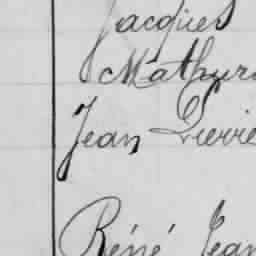 Jacques
Mathuri
Jean Pierre
Réné Jean